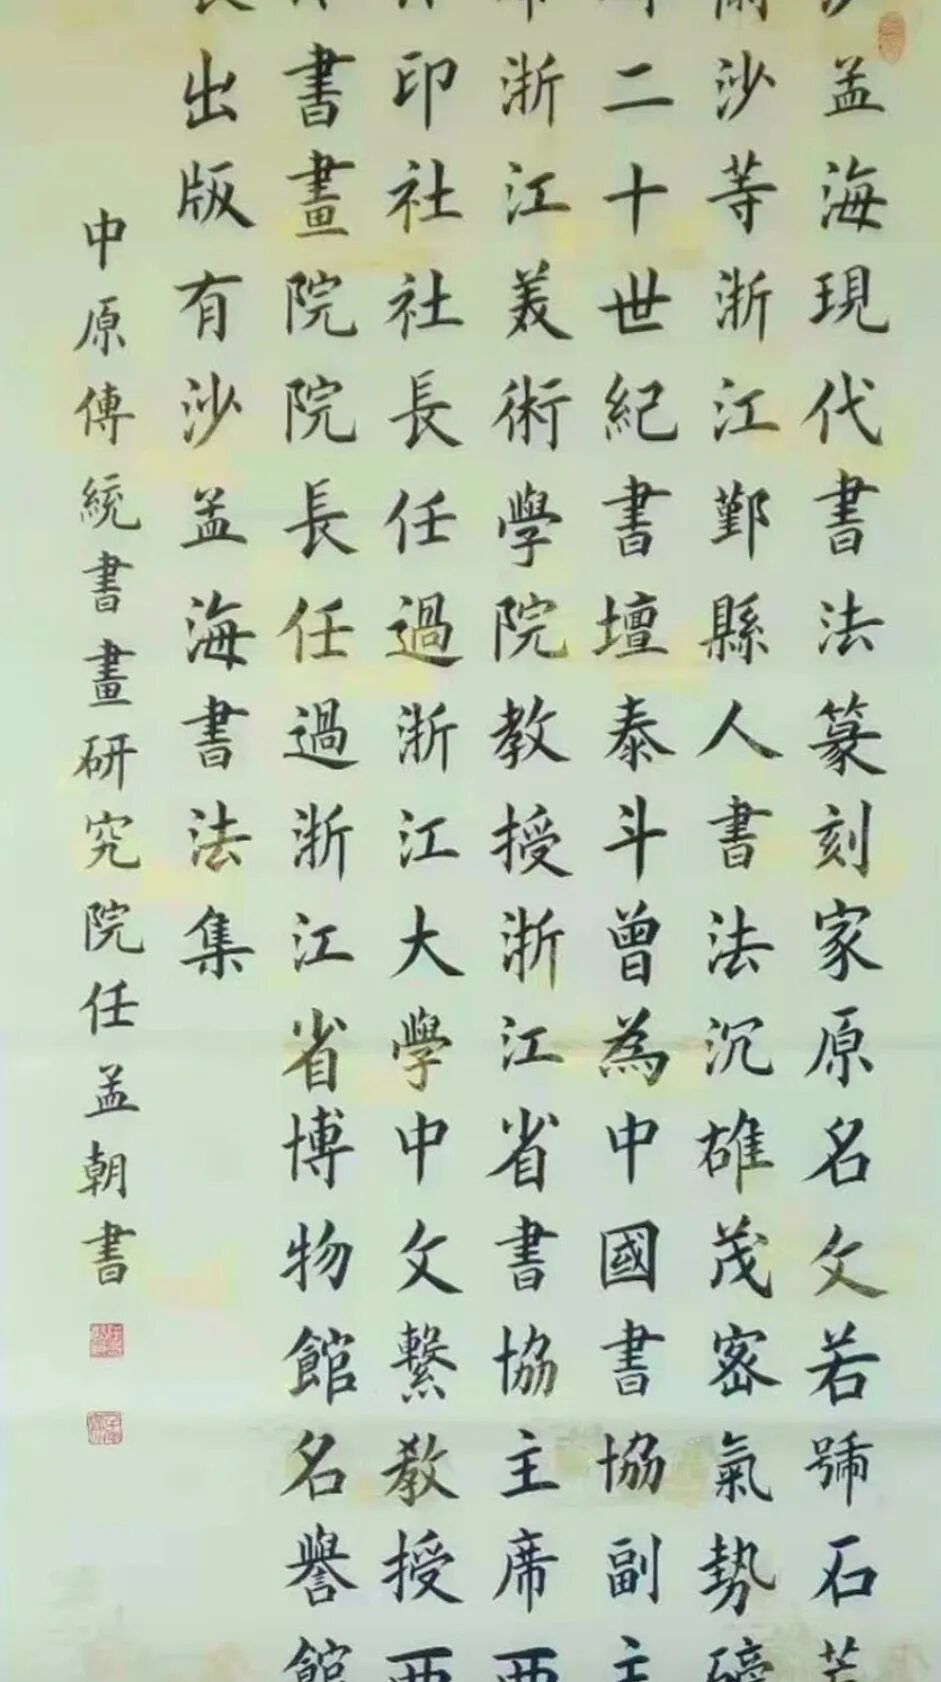 沙孟海現代書法篆刻家原名文若號石荒
沙等浙江鄞縣人書法沉雄茂密氣勢磅
二十世紀書壇泰斗曾為中國書協副主
浙江美術學院教授浙江省書協主席西
印社社長任過浙江大學中文繫教授西
書畫院院長任過浙江省博物館名譽館
長出版有沙孟海書法集
中原傳統書畫研究院任孟朝書